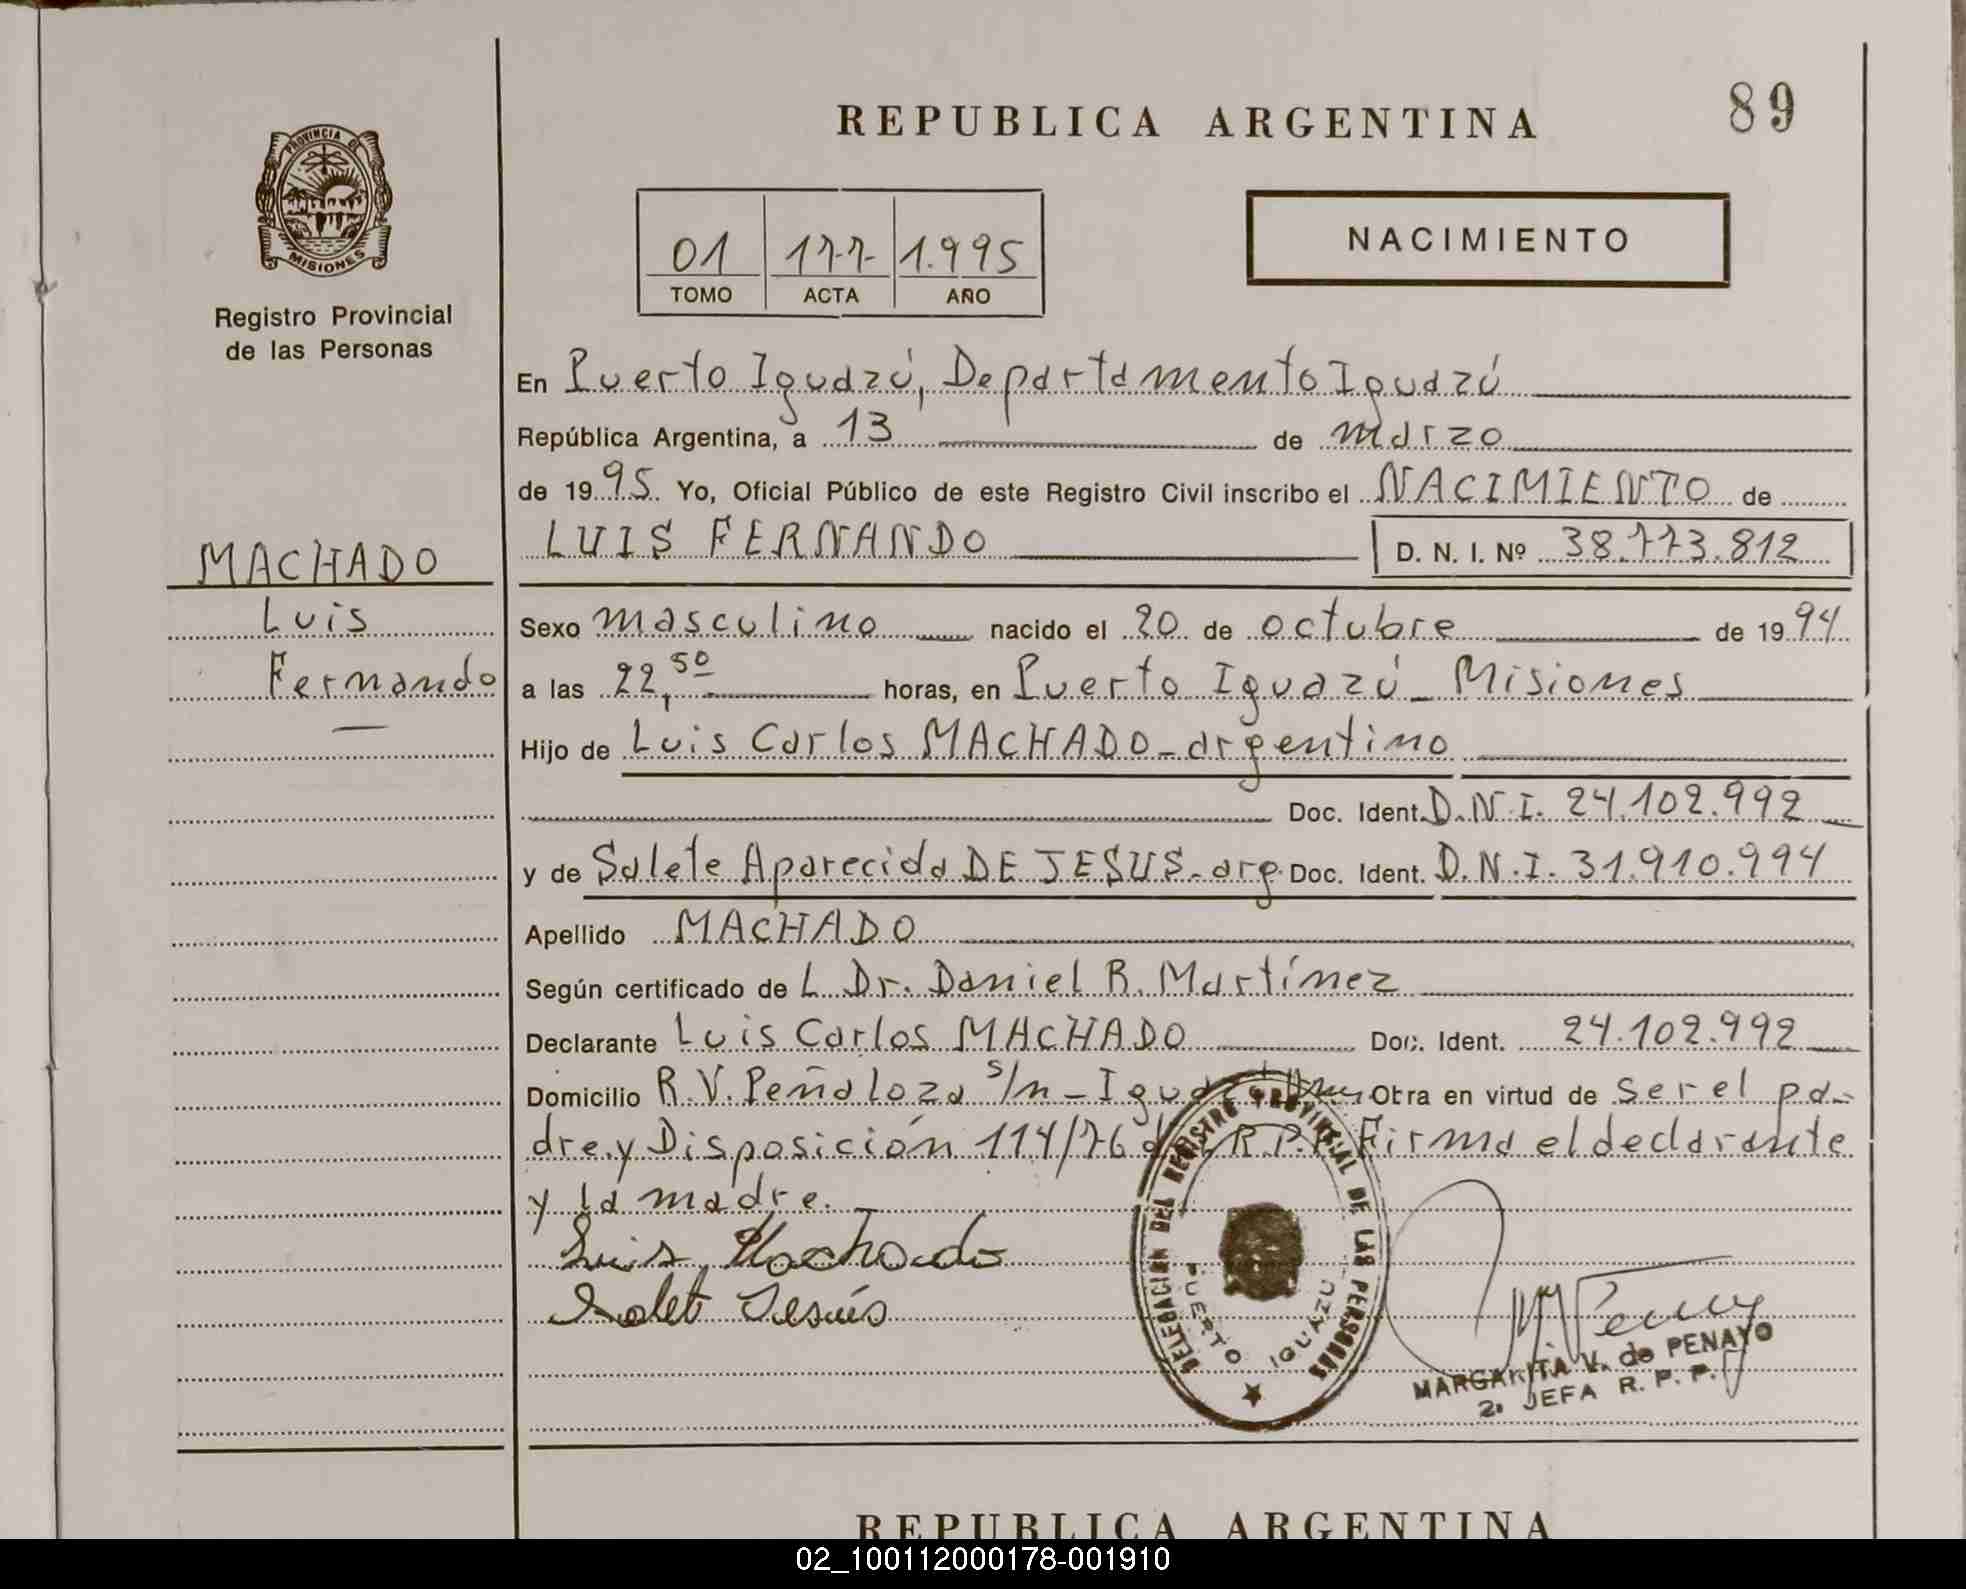 REPUBLICA ARGENTINA
89
PROVINCIA DE MISIONES
Registro Provincial
de las Personas
01 177- 1.995
TOMO ACTA AÑO
NACIMIENTO
En Puerto Iguazú, Departamento Iguazú
República Argentina, a 13 de marzo
de 1995. Yo, Oficial Público de este Registro Civil inscribo el NACIMIENTO de
LUIS FERNANDO D. N. I. Nº 38.773.812
MACHADO
Luis
Fernando
Sexo masculino nacido el 20 de octubre de 1994
a las 22,50 horas, en Puerto Iguazú - Misiones
Hijo de Luis Carlos MACHADO - argentino
Doc. Ident. D.N.I. 24.102.992
y de Salete Aparecida DE JESUS - arg. Doc. Ident. D.N.I. 31.910.994
Apellido MACHADO
Según certificado de L Dr. Daniel R. Martínez
Declarante Luis Carlos MACHADO Doc. Ident. 24.102.992
Domicilio R.V. Peñaloza s/n - Obra en virtud de ser el pa-
dre y Disposición 114/76 R.P.P. Firma el declarante
y la madre.
Luis Machado
Salete Jesús
DELEGACION DEL REGISTRO PROVINCIAL DE LAS PERSONAS
PUERTO IGUAZU
MARGARITA V. de PENAYO
2. JEFA R. P. P.
REPUBLICA ARGENTINA
02_100112000178-001910